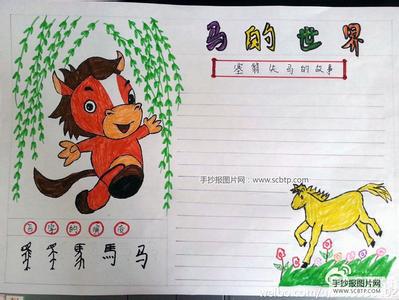 马的世界
塞翁失马的故事
手抄报图片网：www.scbtp.com
马字的演变
馬 马
手抄报图片网
WWW.SCBTP.COM
weibo.com/